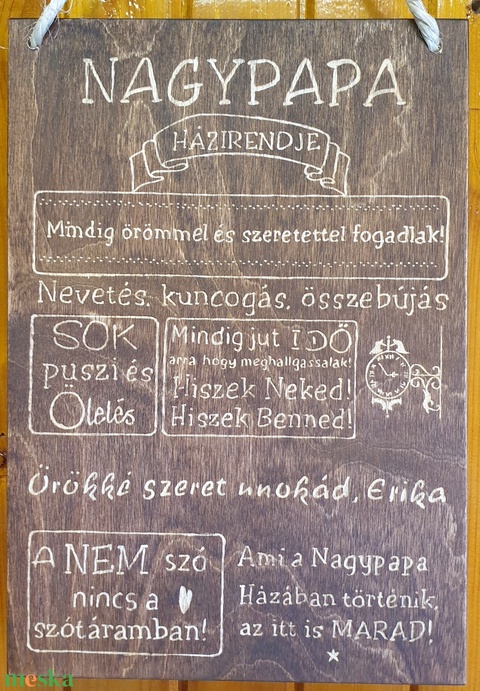 NAGYPAPA
HÁZIRENDJE
Mindig örömmel és szeretettel fogadlak!
Nevetés, kuncogás, összebújás
SOK
puszi és
Ölelés
Mindig jut IDŐ
arra hogy meghallgassalak!
Hiszek Neked!
Hiszek Benned!
Örökké szeret unokád, Erika
A NEM szó
nincs a
szótáramban!
Ami a Nagypapa
Házában történik,
az itt is MARAD!
meska